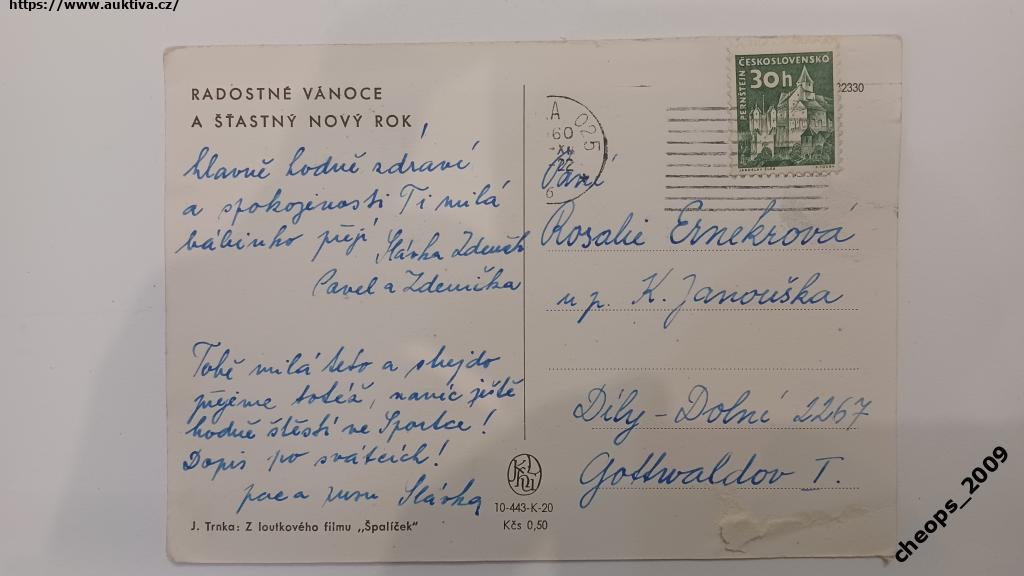 https://www.auktiva.cz/
RADOSTNÉ VÁNOCE
A ŠŤASTNÝ NOVÝ ROK
hlavně hodně zdraví
a spokojenosti Ti milá
babinko přejí Slávka Zdeněk
Pavel a Zdenička
Tobě milá teto a strejdo
přejeme totéž, navíc ještě
hodně štěstí ve Sportce!
Dopis po svátcích!
pac a pusu Slávka
J. Trnka: Z loutkového filmu „Špalíček"
10-443-K-20
Kčs 0,50
A 025
60
XI
22
6
ČESKOSLOVENSKO
30h
PERNŠTEJN
2330
Paní
Rosalie Ernekrová
u p. K. Janouška
Díly-Dolní 2267
Gottwaldov I.
cheops_2009